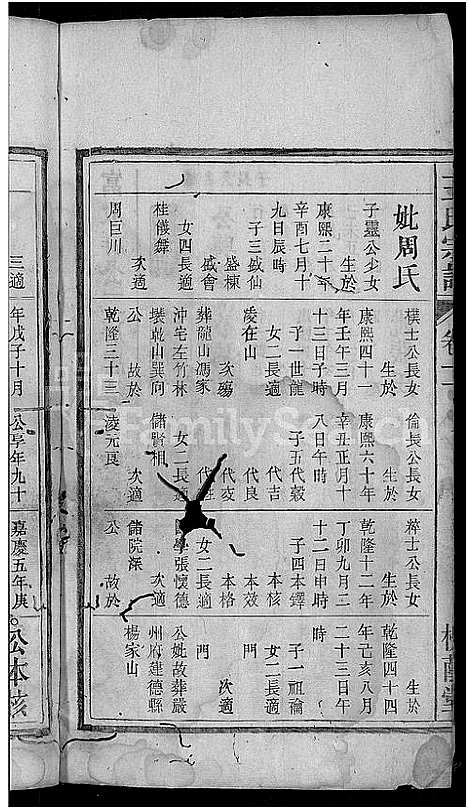 王氏宗譜
卷十一
妣周氏
子靈公少女
生於
康熙二十年
辛酉七月十
九日辰時
子三盛仙
盛棟
盛會
女四長適
桂儀舞
次適
周巨川
三適
樸士公長女
生於
康熙四十一
年壬午三月
十三日子時
子一世龍
女二長適
淩在山
次殤
葬隴山馮家
沖宅左竹林
塋乾山巽向
公
故於
乾隆三十三
年戊子十月
倫長公長女
生於
康熙六十年
辛丑正月十
八日午時
子五代毅
代吉
代良
代交
女二長適
儲賢楫
次適
淩元良
公享年九十
葬士公長女
生於
乾隆十二年
丁卯九月二
十二日申時
子四本鐸
本核
本效
本格
女二長適
學張懷德
次適
儲院深
公
故於
嘉慶五年庚
生於
乾隆四十四
年己亥八月
二十三日午
時
子一祖論
女二長適
門
次適
門
公妣故葬嚴
州府建德縣
楊家山
松本核
FamilySearch